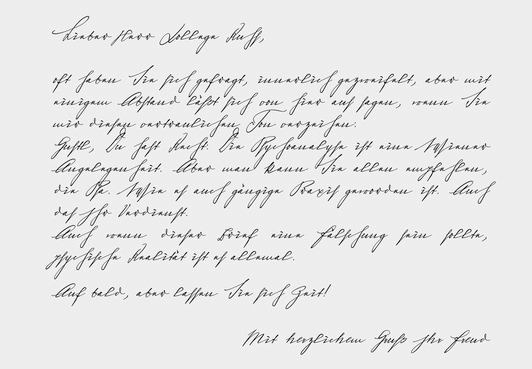 Lieber Herr Kollege Ruff,
oft haben Sie sich gefragt, innerlich gezweifelt, aber mit
einigem Abstand läßt sich von hier aus sagen, wenn Sie
mir diesen vertraulichen Ton verzeihen:
Gustl, Du hast Recht. Die Psychoanalyse ist eine Wiener
Angelegenheit. Aber man kann Sie allen empfehlen,
die Pa. Wien es auch gängige Praxis geworden ist. Auch
das Ihr Verdienst.
Auch wenn dieser Brief eine Fälschung sein sollte,
psychische Realität ist es allemal.
Auf bald, aber lassen Sie sich Zeit!
Mit herzlichem Gruß Ihr Freud